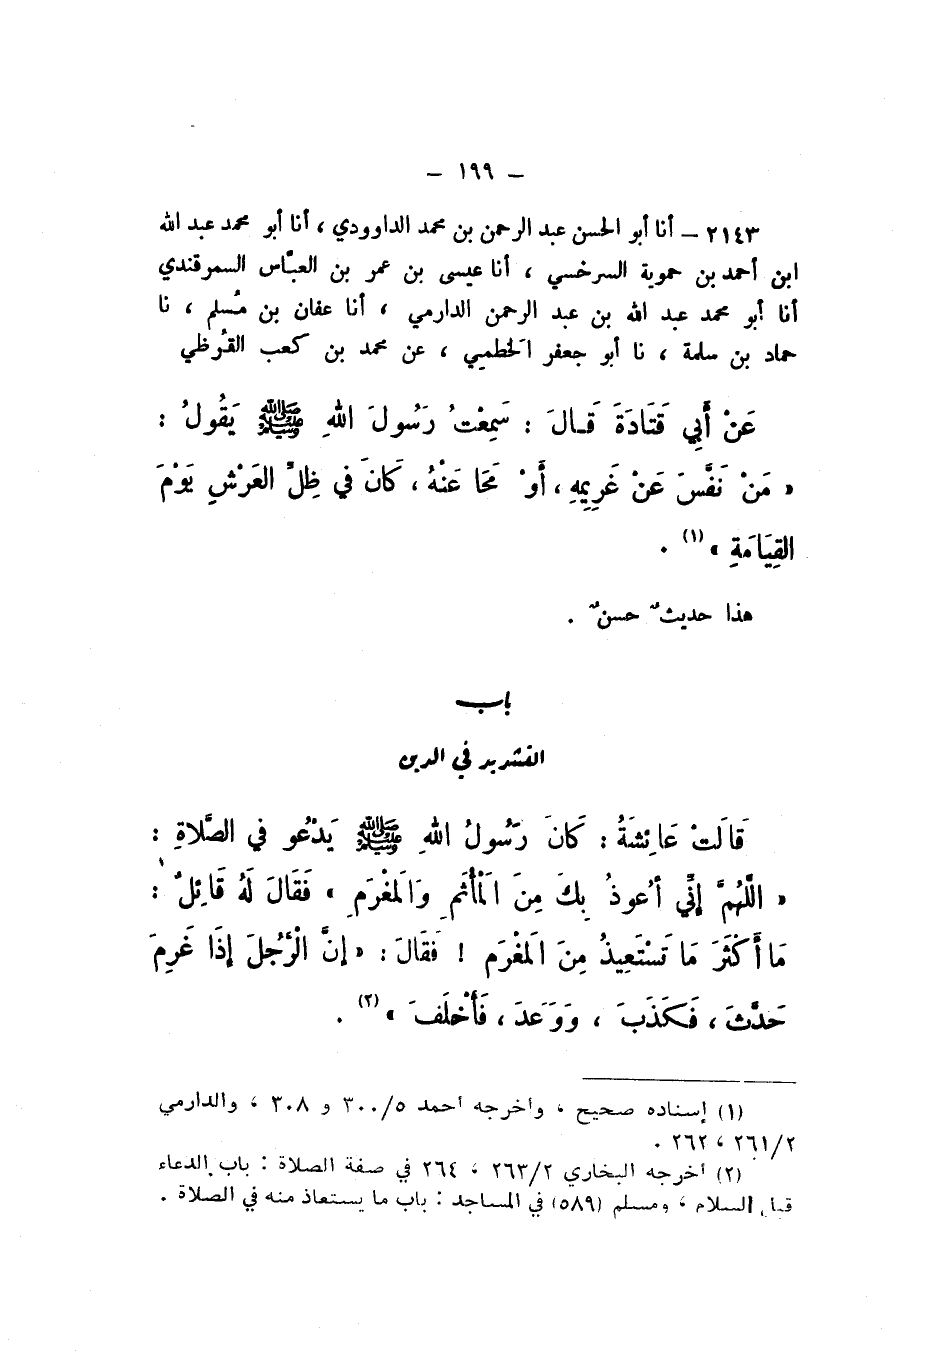 – ١٩٩ –
٢١٤٣ – أنا أبو الحسن عبد الرحمن بن محمد الداوودي ، أنا أبو محمد عبد الله
ابن أحمد بن حموية السرخسي ، أنا عيسى بن عمر بن العبَّاس السمرقندي
أنا أبو محمد عبد الله بن عبد الرحمن الدارمي ، أنا عفان بن مُسلم ، نا
حماد بن سلمة ، نا أبو جعفر الخطمي ، عن محمد بن كعب القُرظي
عَنْ أَبِي قَتَادَةَ قَالَ : سَمِعْتُ رَسُولَ اللهِ ﷺ يَقُولُ :
« مَنْ نَفَّسَ عَنْ غَرِيمِهِ ، أَوْ مَحَا عَنْهُ ، كَانَ في ظِلِّ العَرْشِ يَوْمَ
القِيَامَةِ » (١) .
هذا حديثٌ حسنٌ .
باب
التشديد في الدين
قَالَتْ عَائِشَةُ : كَانَ رَسُولُ اللهِ ﷺ يَدْعُو فِي الصَّلاةِ :
« اللَّهُمَّ إِنِّي أَعُوذُ بِكَ مِنَ المَأْثَمِ وَالمَغْرَمِ » فَقَالَ لَهُ قَائِلٌ :
مَا أَكْثَرَ مَا تَسْتَعِيذُ مِنَ المَغْرَمِ ! فَقَالَ : « إِنَّ الرَّجُلَ إِذَا غَرِمَ
حَدَّثَ ، فَكَذَبَ ، وَوَعَدَ ، فَأَخْلَفَ » (٢) .
(١) إسناده صحيح ، وأخرجه أحمد ٣٠٠/٥ و ٣٠٨ ، والدارمي
٢٦١/٢ ، ٢٦٢ .
(٢) أخرجه البخاري ٢٦٣/٢ ، ٢٦٤ في صفة الصلاة : باب الدعاء
قبل السلام ، ومسلم (٥٨٩) في المساجد : باب ما يستعاذ منه في الصلاة .